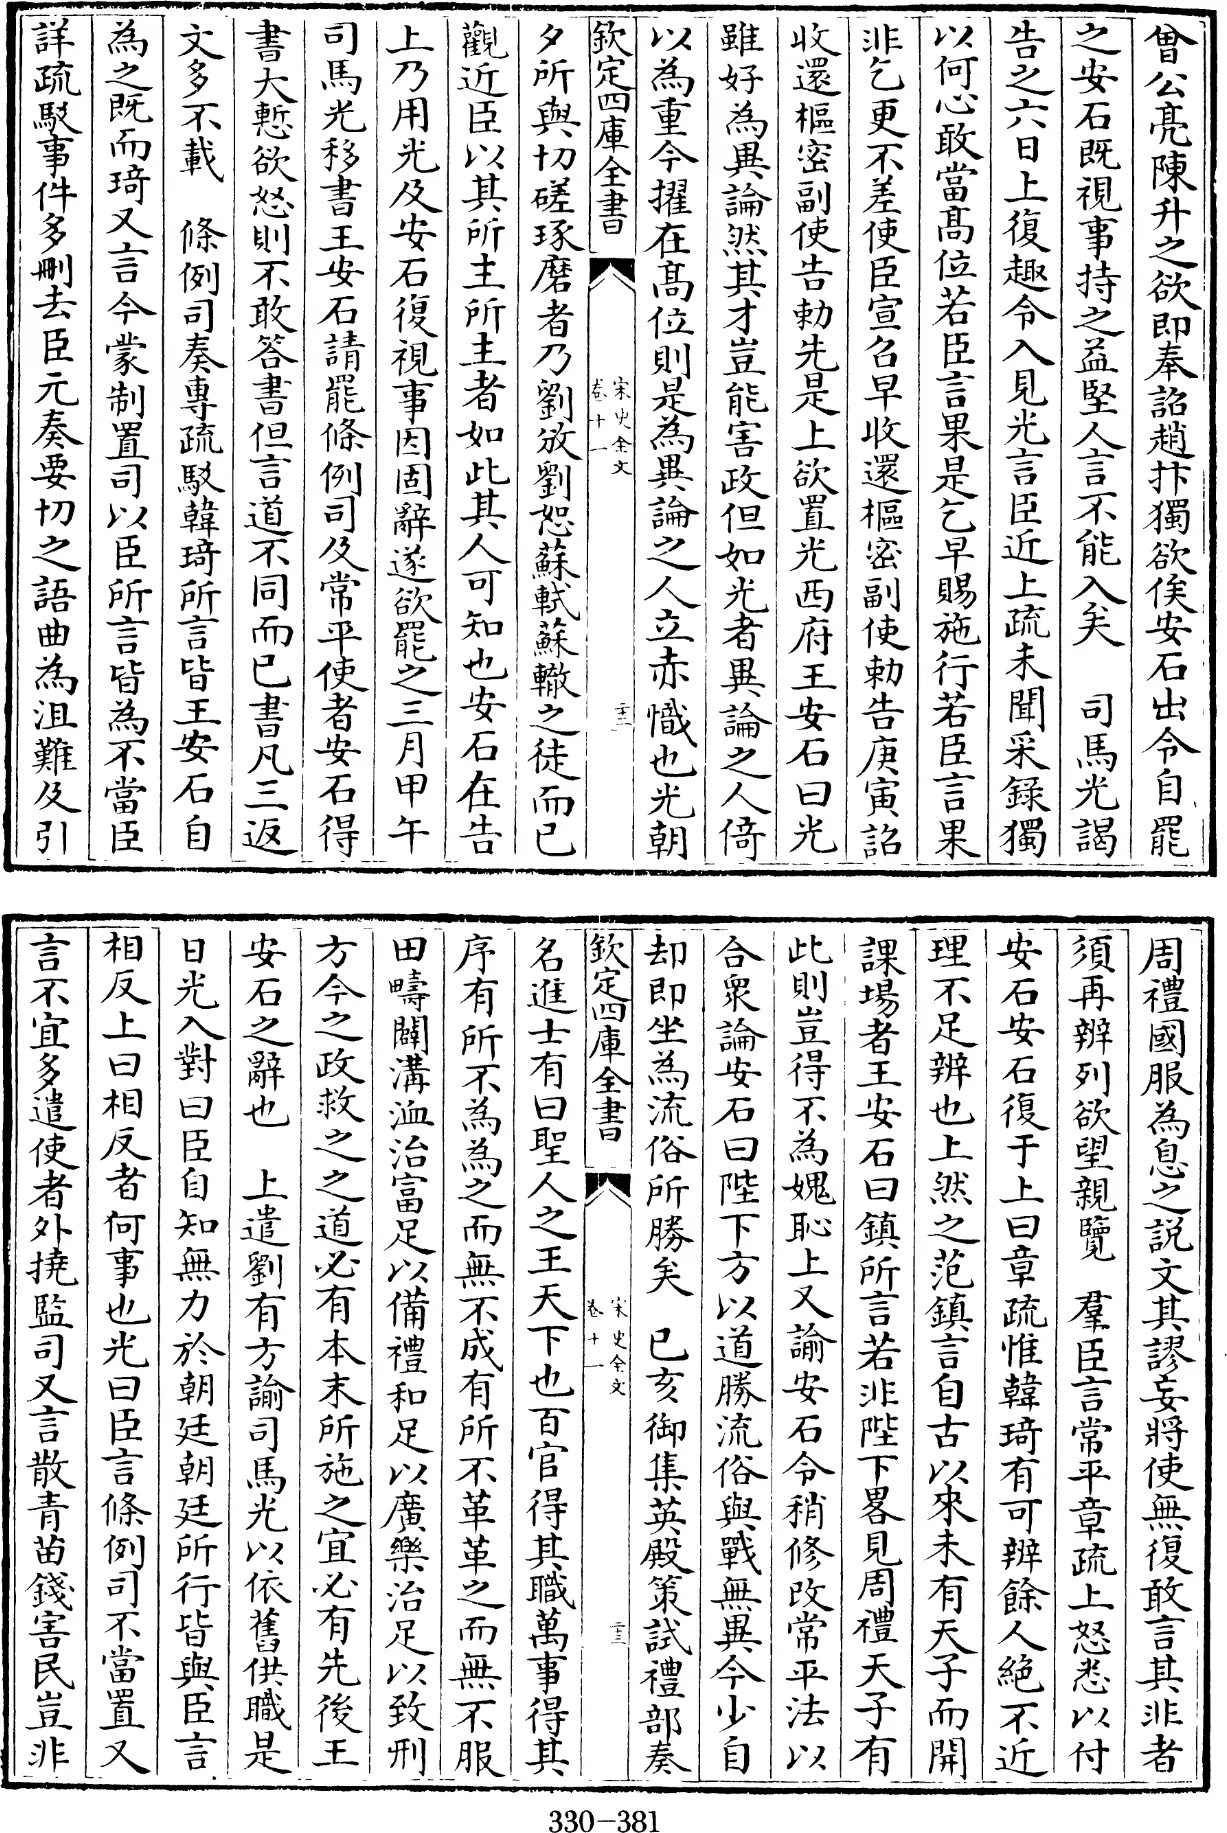 曾公亮陳升之欲即奉詔趙抃獨欲俟安石出令自罷
之安石既視事持之益堅人言不能入矣　司馬光謁
告之六日上復趣令入見光言臣近上疏未聞采錄獨
以何心敢當高位若臣言果是乞早賜施行若臣言果
非乞更不差使臣宣召早收還樞密副使勅告庚寅詔
收還樞密副使告勅先是上欲置光西府王安石曰光
雖好為異論然其才豈能害政但如光者異論之人倚
以為重今擢在高位則是為異論之人立赤幟也光朝
欽定四庫全書
宋史全文
卷十一
二十二
夕所與切磋琢磨者乃劉攽劉恕蘇軾蘇轍之徒而已
觀近臣以其所主所主者如此其人可知也安石在告
上乃用光及安石復視事因固辭遂欲罷之三月甲午
司馬光移書王安石請罷條例司及常平使者安石得
書大慙欲怒則不敢答書但言道不同而已書凡三返
文多不載　條例司奏專疏駁韓琦所言皆王安石自
為之既而琦又言今蒙制置司以臣所言皆為不當臣
詳疏駁事件多刪去臣元奏要切之語曲為沮難及引
周禮國服為息之説文其謬妄將使無復敢言其非者
須再辨列欲望親覽　羣臣言常平章疏上怒悉以付
安石安石復于上曰章疏惟韓琦有可辨餘人絕不近
理不足辨也上然之范鎮言自古以來未有天子而開
課場者王安石曰鎮所言若非陛下畧見周禮天子有
此則豈得不為媿恥上又諭安石令稍修改常平法以
合衆論安石曰陛下方以道勝流俗與戰無異今少自
却即坐為流俗所勝矣　已亥御集英殿策試禮部奏
欽定四庫全書
宋史全文
卷十一
二十三
名進士有曰聖人之王天下也百官得其職萬事得其
序有所不為為之而無不成有所不革革之而無不服
田疇闢溝洫治富足以備禮和足以廣樂治足以致刑
方今之政救之之道必有本末所施之宜必有先後王
安石之辭也　上遣劉有方諭司馬光以依舊供職是
日光入對曰臣自知無力於朝廷朝廷所行皆與臣言
相反上曰相反者何事也光曰臣言條例司不當置又
言不宜多遣使者外撓監司又言散青苗錢害民豈非
330-381